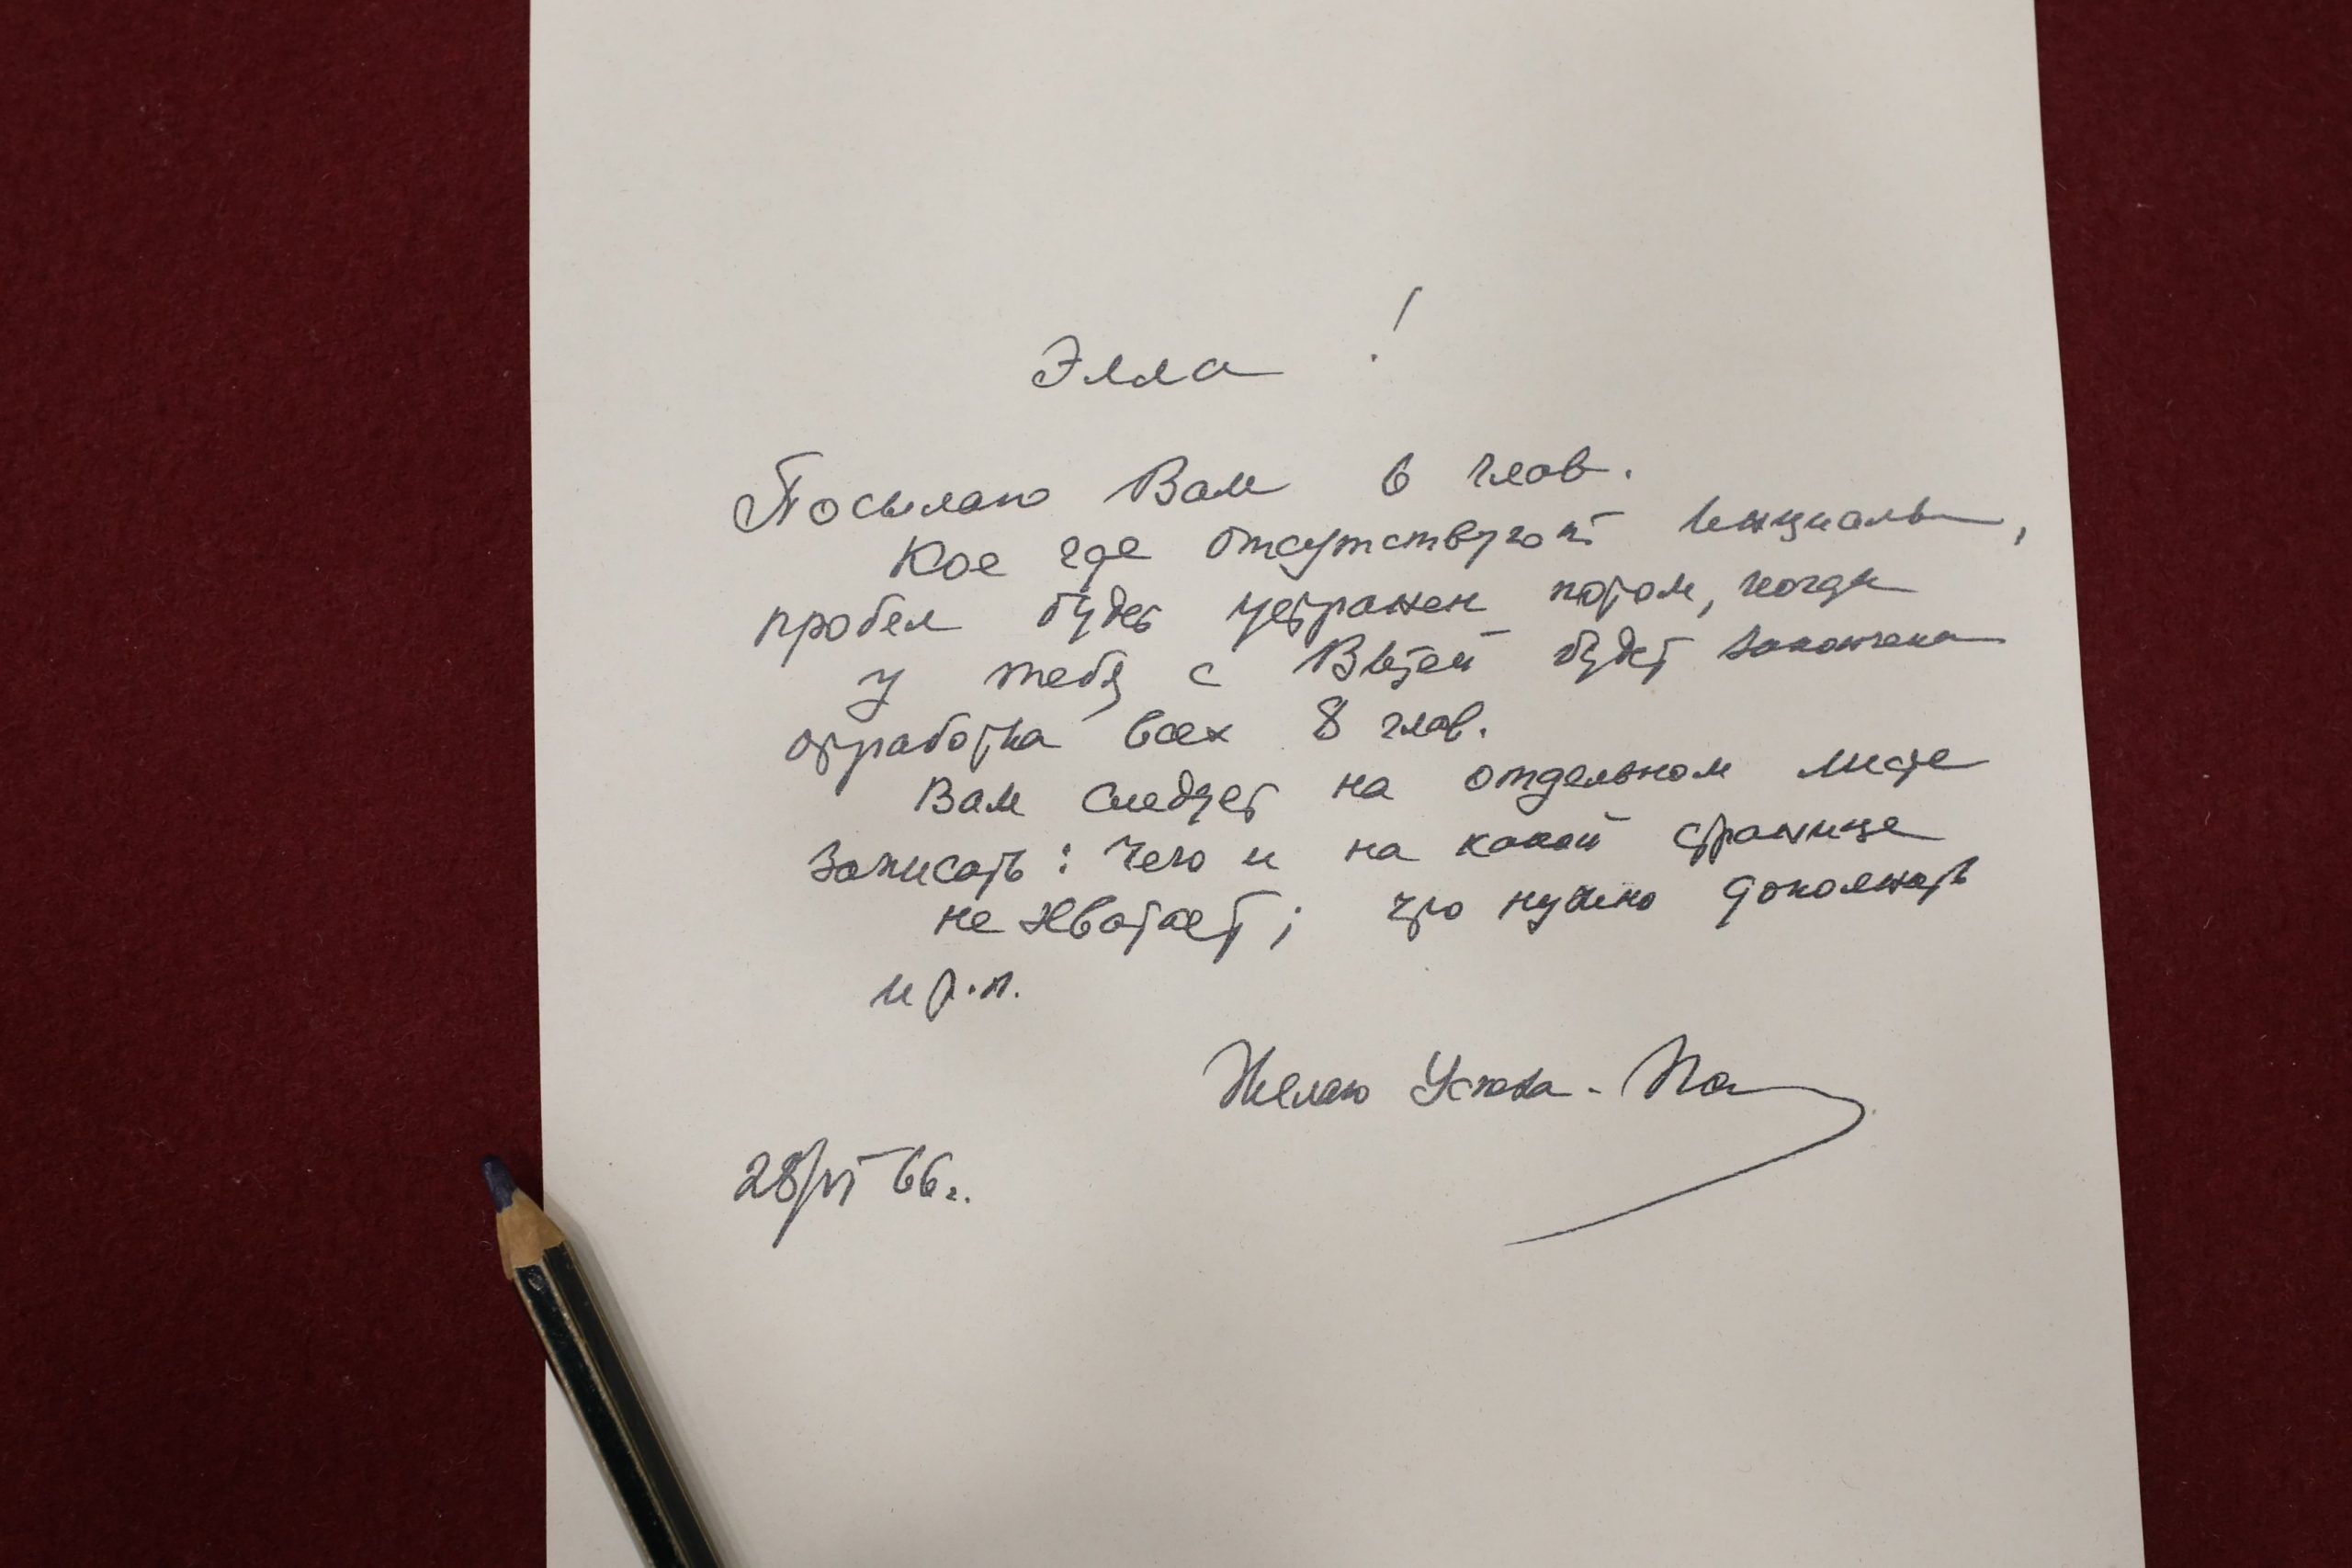 Элла !
Посылаю Вам 6 глав.
Кое где отсутствуют инициалы,
пробел будет устранен потом, когда
у тебя с Витей будет закончена
отработка всех 8 глав.
Вам следует на отдельном листе
записать: чего и на какой странице
не хватает; что нужно дополнить
и т.п.
Желаю Успеха - Па
28/VI 66 г.